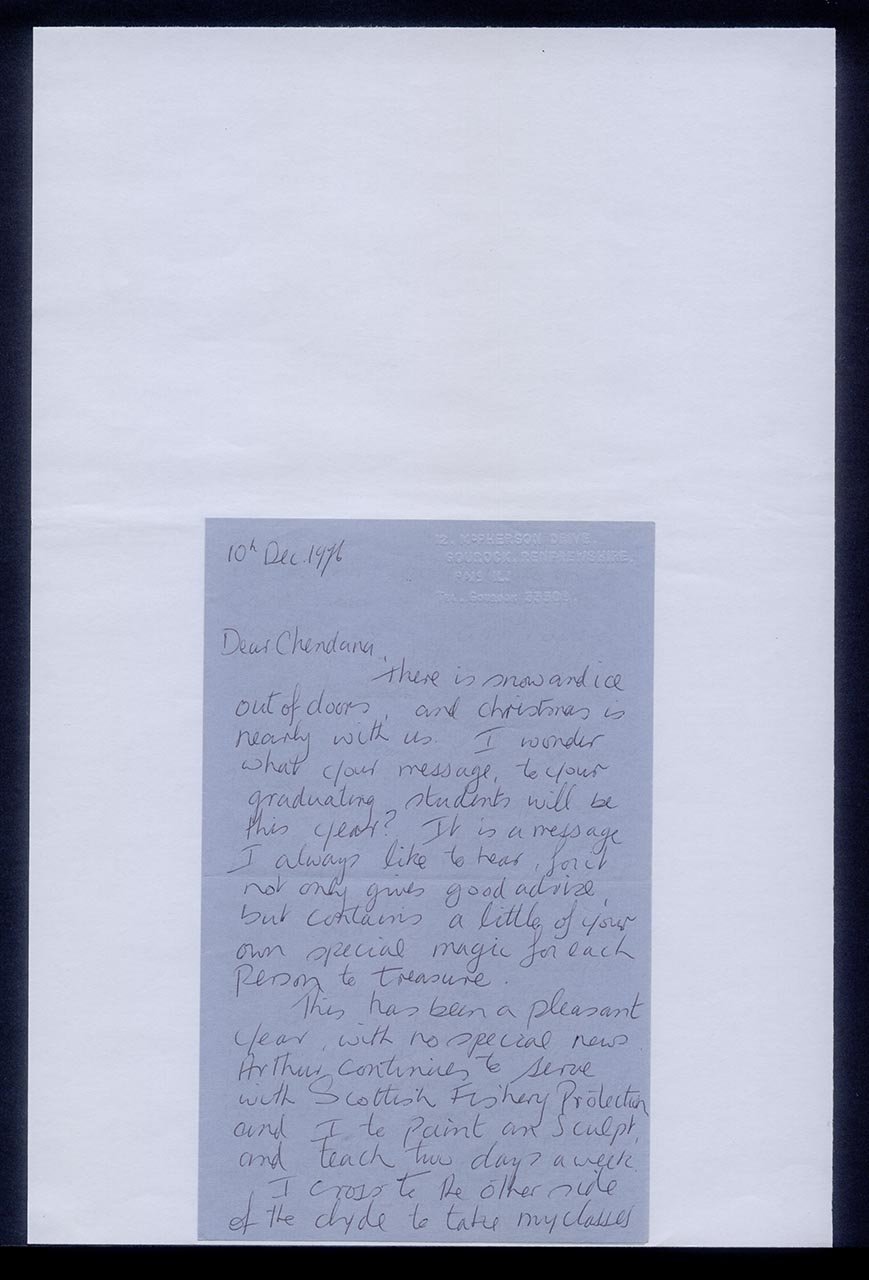 10th Dec. 1976
12, McPHERSON DRIVE,
GOUROCK, RENFREWSHIRE,
PA19 1LJ
TEL. GOUROCK
Dear Chendana,
There is snow and ice
out of doors, and christmas is
nearly with us. I wonder
what your message, to your
graduating students will be
this year? It is a message
I always like to hear, for it
not only gives good advise,
but contains a little of your
own special magic for each
Person to treasure.
This has been a pleasant
year, with no special news.
Arthur continues to serve
with Scottish Fishery Protection
and I to paint an Sculpt,
and teach two days a week.
I cross to the other side
of the clyde to take my classes